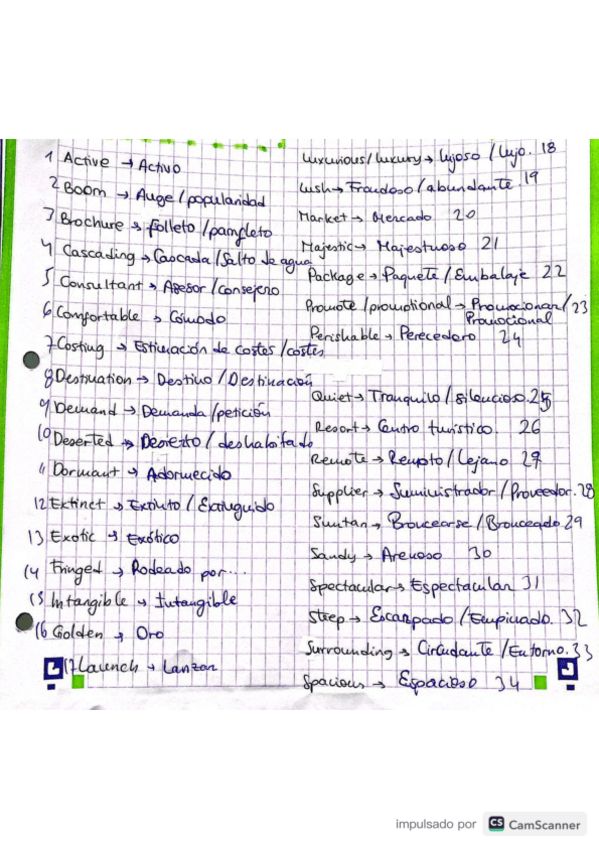 1 Active → Activo
2 Boom → Auge / popularidad
3 Brochure → folleto / pamfleto
4 Cascading → Cascada / Salto de agua
5 Consultant → Asesor / consejero
6 Comfortable → Cómodo
7 Costing → Estimación de costes / costes
8 Destination → Destino / Destinación
9 Demand → Demanda / petición
10 Deserted → Desierto / deshabitado
11 Dormant → Adormecido
12 Extinct → Extinto / Extinguido
13 Exotic → Exótico
14 Fringed → Rodeado por...
15 Intangible → Intangible
16 Golden → Oro
17 Launch → Lanzar
Luxurious / luxury → lujoso / lujo. 18
Lush → Frondoso / abundante. 19
Market → Mercado 20
Majestic → Majestuoso 21
Package → Paquete / Embalaje 22
Promote / promotional → Promocionar / 23
Promocional
Perishable → Perecedero 24
Quiet → Tranquilo / silencioso. 25
Resort → Centro turístico. 26
Remote → Remoto / Lejano 27
Supplier → Suministrador / Proveedor. 28
Suntan → Broncearse / Bronceado 29
Sandy → Arenoso 30
Spectacular → Espectacular 31
Steep → Escarpado / Empinado. 32
Surrounding → Circundante / Entorno. 33
Spacious → Espacioso 34
impulsado por CS CamScanner